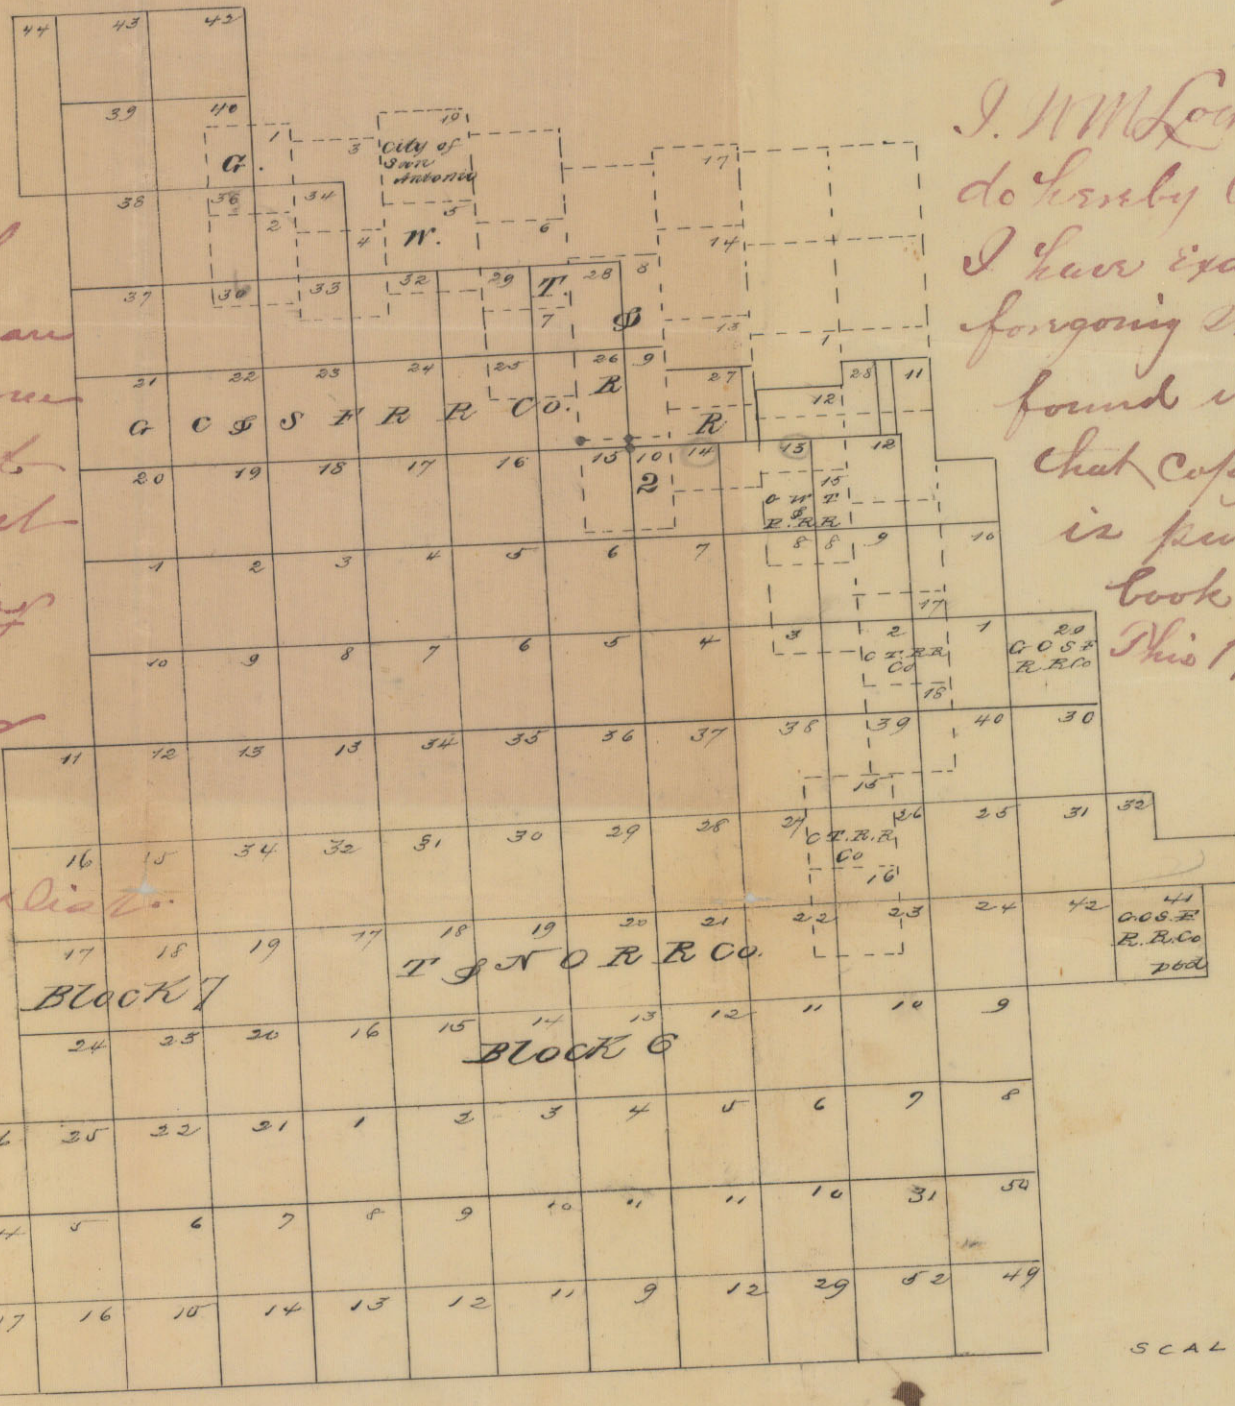 44 43 42
39 40
1
G.
3
19
City of
San
Antonio
17
38 36 34
2
4
W.
5
6
14
37 30 33 32 29 T. 28 8
7
&
13
1
21 22 23 24 25 26 9 27 28 11
G C & S F R R Co. R
R
12
20 19 18 17 16 15 10 14 13 12
2
15
G W T
&
P. RR
1 2 3 4 5 6 7 8 8 9 10
17
10 9 8 7 6 5 4 3 2 1 29
C T. RR
Co
G C S F
R. R Co
18
11 12 13 13 34 35 36 37 38 39 40 30
15
16 15 34 32 31 30 29 28 27 26 25 31 32
C T. R. R.
Co
16
17 18 19 17 18 19 20 21 22 23 24 42 41
G. C S. F
R. R. Co
Block 7
T & N O R R Co.
24 23 20 16 15 14 13 12 11 10 9
Block 6
25 22 21 1 2 3 4 5 6 7 8
5 6 7 8 9 10 11 11 10 31 50
17 16 15 14 13 12 11 9 12 29 52 49
SCAL
I. W M
do hereby
I have exa
foregoing
found
that cop
is
book
This 1